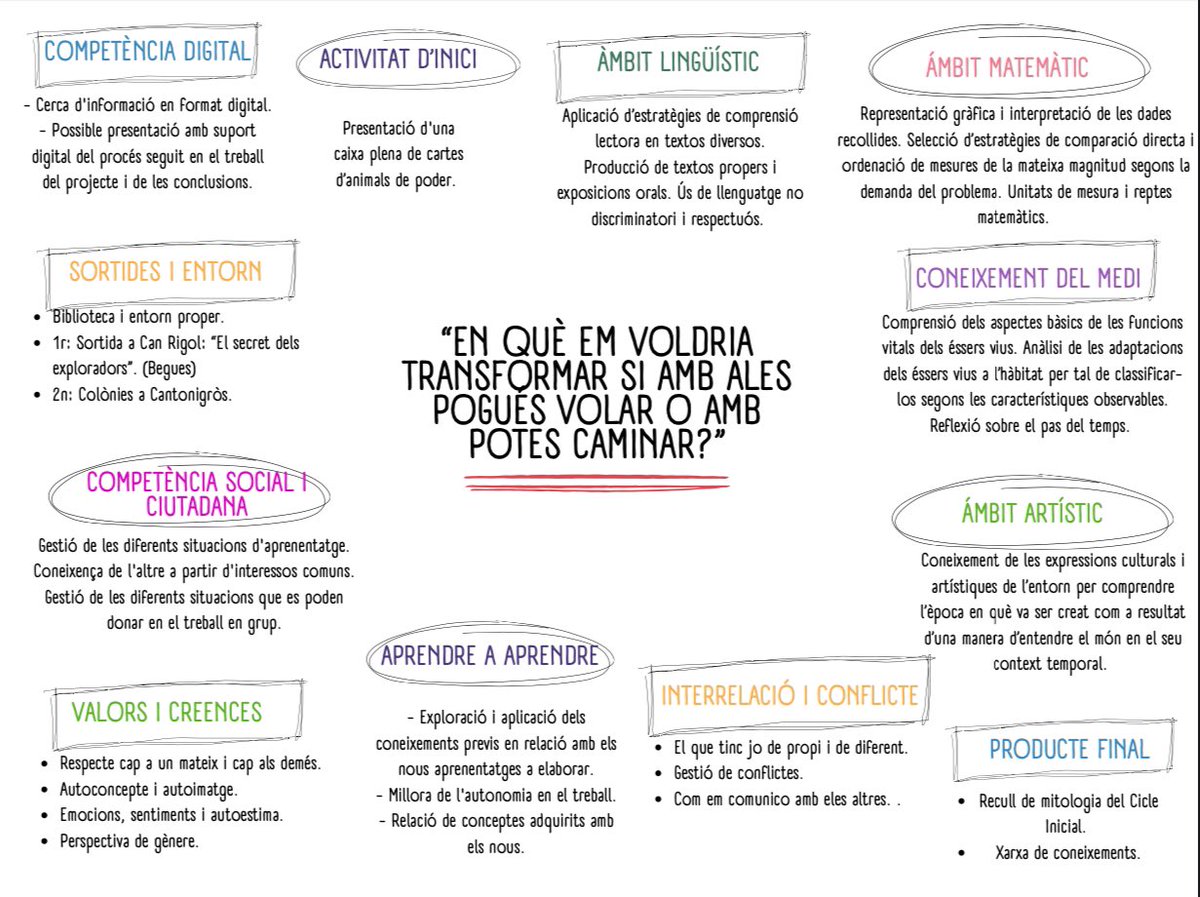 COMPETÈNCIA DIGITAL
- Cerca d'informació en format digital.
- Possible presentació amb suport
digital del procés seguit en el treball
del projecte i de les conclusions.
ACTIVITAT D'INICI
Presentació d'una
caixa plena de cartes
d'animals de poder.
ÀMBIT LINGÜÍSTIC
Aplicació d'estratègies de comprensió
lectora en textos diversos.
Producció de textos propers i
exposicions orals. Ús de llenguatge no
discriminatori i respectuós.
ÁMBIT MATEMÀTIC
Representació gràfica i interpretació de les dades
recollides. Selecció d'estratègies de comparació directa i
ordenació de mesures de la mateixa magnitud segons la
demanda del problema. Unitats de mesura i reptes
matemàtics.
SORTIDES I ENTORN
• Biblioteca i entorn proper.
• 1r: Sortida a Can Rigol: "El secret dels
exploradors". (Begues)
• 2n: Colònies a Cantonigròs.
"EN QUÈ EM VOLDRIA
TRANSFORMAR SI AMB ALES
POGUÉS VOLAR O AMB
POTES CAMINAR?"
CONEIXEMENT DEL MEDI
Comprensió dels aspectes bàsics de les funcions
vitals dels éssers vius. Anàlisi de les adaptacions
dels éssers vius a l'hàbitat per tal de classificar-
los segons les característiques observables.
Reflexió sobre el pas del temps.
COMPETÈNCIA SOCIAL I
CIUTADANA
Gestió de les diferents situacions d'aprenentatge.
Coneixença de l'altre a partir d'interessos comuns.
Gestió de les diferents situacions que es poden
donar en el treball en grup.
ÁMBIT ARTÍSTIC
Coneixement de les expressions culturals i
artístiques de l'entorn per comprendre
l'època en què va ser creat com a resultat
d'una manera d'entendre el món en el seu
context temporal.
VALORS I CREENCES
• Respecte cap a un mateix i cap als demés.
• Autoconcepte i autoimatge.
• Emocions, sentiments i autoestima.
• Perspectiva de gènere.
APRENDRE A APRENDRE
- Exploració i aplicació dels
coneixements previs en relació amb els
nous aprenentatges a elaborar.
- Millora de l'autonomia en el treball.
- Relació de conceptes adquirits amb
els nous.
INTERRELACIÓ I CONFLICTE
• El que tinc jo de propi i de diferent.
• Gestió de conflictes.
• Com em comunico amb eles altres. .
PRODUCTE FINAL
• Recull de mitologia del Cicle
Inicial.
• Xarxa de coneixements.